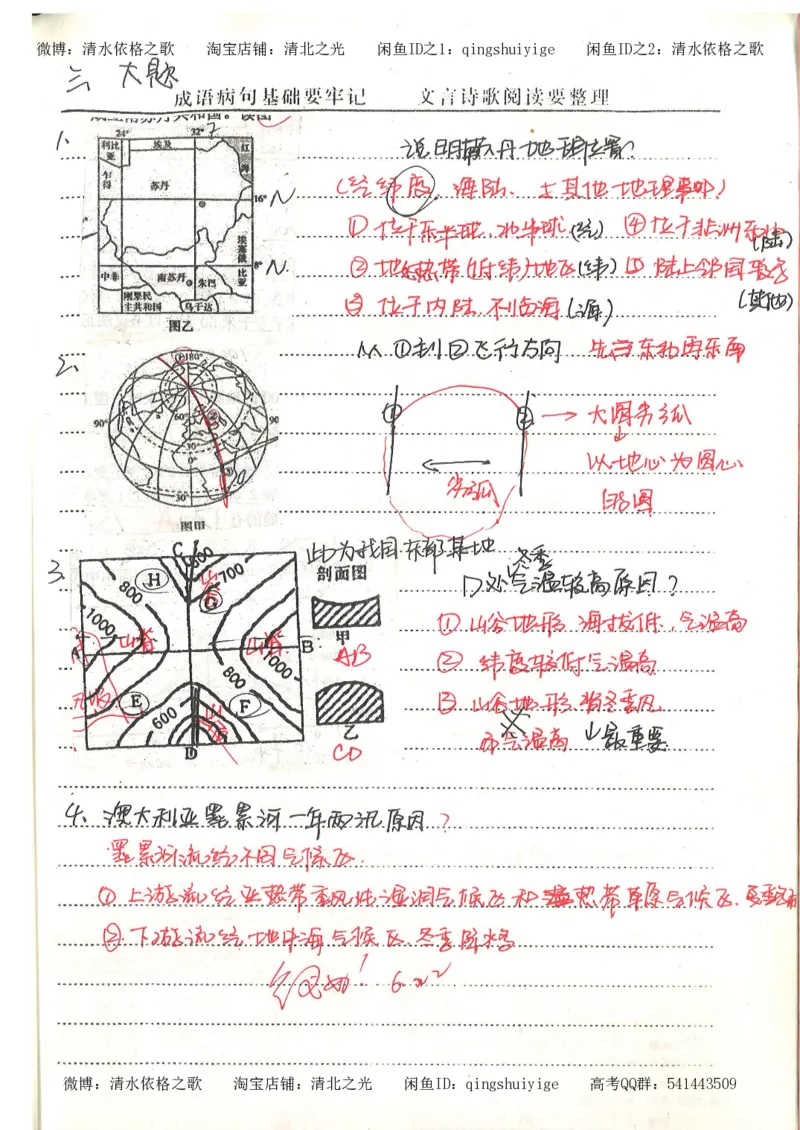 微博：清水依格之歌 淘宝店铺：清北之光 闲鱼ID之1：qingshuiyige 闲鱼ID之2：清水依格之歌
三 大题
成语病句基础要牢记 文言诗歌阅读要整理
1.
24° 32°
利比亚 埃及 红海
乍得 苏丹
16° N
埃塞俄比亚
8° N
中非 南苏丹 朱巴
刚果民主共和国 乌干达
图乙
说明南苏丹地理位置？
(经纬度、海陆、土其他地理事物)
①位于东半球,北半球(经) ④位于非洲东北(陆)
②地处热带(低纬)地区(纬) ⑤陆上邻国较多(其他)
③位于内陆,不临海(海)
2.
180°
90° 60° 90°
30°
0°
30°
图甲
从①到②飞行方向 先向东北再东南
① ② → 大圆劣弧
劣弧
以地心为圆心
的圆
3.
此为我国东部某地
C 800 700
H 800 G
1000 山脊 山脊 B
1000
800
E F
600
D
剖面图
甲
AB
乙
CD
D处冬季气温较高原因？
①山谷地形,海拔低,气温高
②纬度较低气温高
③山谷地形,背冬季风,
气温高 最重要
4、澳大利亚墨累河一年两汛原因？
墨累河流经不同气候区.
①上游流经亚热带季风性湿润气候区和热带草原气候区,
②下游流经地中海气候区,冬季降水多
微博：清水依格之歌 淘宝店铺：清北之光 闲鱼ID：qingshuiyige 高考QQ群：541443509